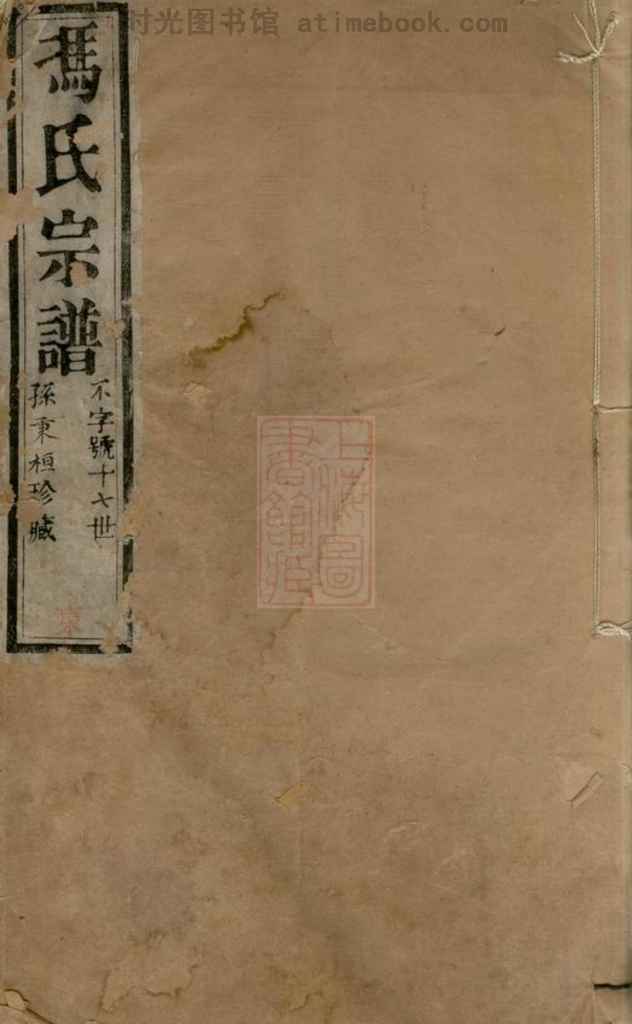 时光图书馆 atimebook.com
馮氏宗譜
不字號十七世
孫秉桓珍藏
上海圖
書館藏